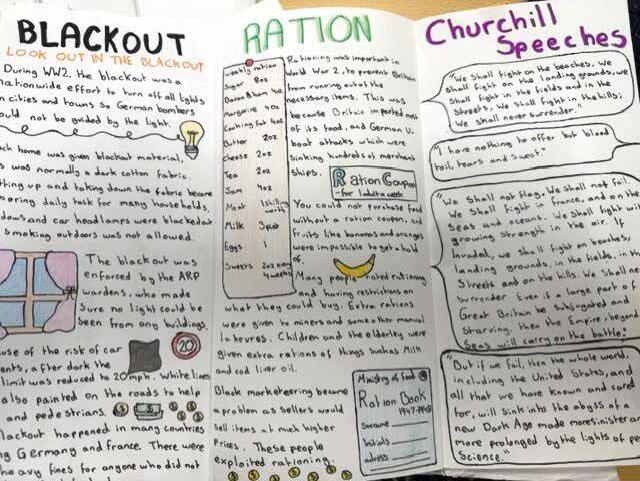 BLACKOUT
LOOK OUT IN THE BLACKOUT
During WW2, the blackout was a
nationwide effort to turn off all lights
in cities and towns so German bombers
would not be guided by the light.
each home was given blackout material,
was normally a dark cotton fabric.
putting up and taking down the fabric became
boring daily task for many households.
windows and car headlamps were blackedout
smoking outdoors was not allowed.
The blackout was
enforced by the ARP
wardens, who made
sure no light could be
seen from any buildings.
because of the risk of car
accidents, after dark the
limit was reduced to 20mph. White lines
also painted on the roads to help
and pedestrians.
20
blackout happened in many countries
Germany and france. There were
heavy fines for anyone who did not
RATION
weekly ration
Sugar 8oz
Bacon & ham 4oz
Margarine 4oz
Cooking fat 4oz
Butter 2oz
Cheese 2oz
Tea 2oz
Jam 4oz
Meat 1 shilling worth
Milk 3pt
Eggs 1
Sweets 2oz every 4 weeks
Rationing was important in
World War 2, to prevent Britain
from running out of the
necessary items. This was
because Britain imported most
of its food, and German U-
boat attacks which were
sinking hundreds of merchant
ships.
Ration Coupon
- for 1 adult a week
You could not purchase food
without a ration coupon, and
fruits like bananas and oranges
were impossible to get a hold
of.
Many people hated rationing
and having restrictions on
what they could buy. Extra rations
were given to miners and some other manual
labourers. Children and the elderley were
given extra rations of things such as Milk
and cod liver oil.
Black marketeering became
a problem as sellers would
sell items at much higher
Prices. These people
exploited rationing.
Ministry of food
Ration Book
1947-1948
Surname
Initials
adress
Churchill
Speeches
"We shall fight on the beaches, we
shall fight on the landing grounds, we
shall fight in the fields and in the
streets, we shall fight in the hills;
We shall never surrender."
"I have nothing to offer but blood
toil, tears and sweat"
"We shall not flag. We shall not fail.
We shall fight in france, and on the
seas and oceans. We shall fight with
growing strength in the air. If
Invaded, we shall fight on beaches,
landing grounds, in the fields, in the
Streets and on the hills. We shall not
surrender Even if a large part of
Great Britain be subjugated and
starving, then the Empire, beyond
Seas will carry on the battle."
"But if we fail, then the whole world,
including the United States, and
all that we have known and cared
for, will sink into the abyss of a
new Dark Age made more sinister and
more prolonged by the lights of
Science."